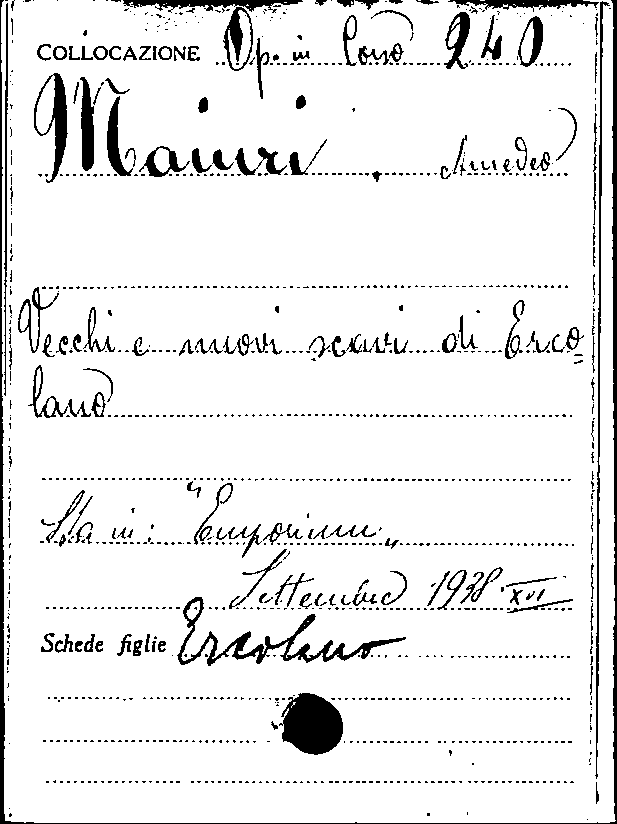 COLLOCAZIONE Op. in Cons 240
Maiuri. Amedeo
Vecchi e nuovi scavi di Erco=
lano
Sta in: "Emporium„
Settembre 1938-XVI
Schede figlie Ercolano